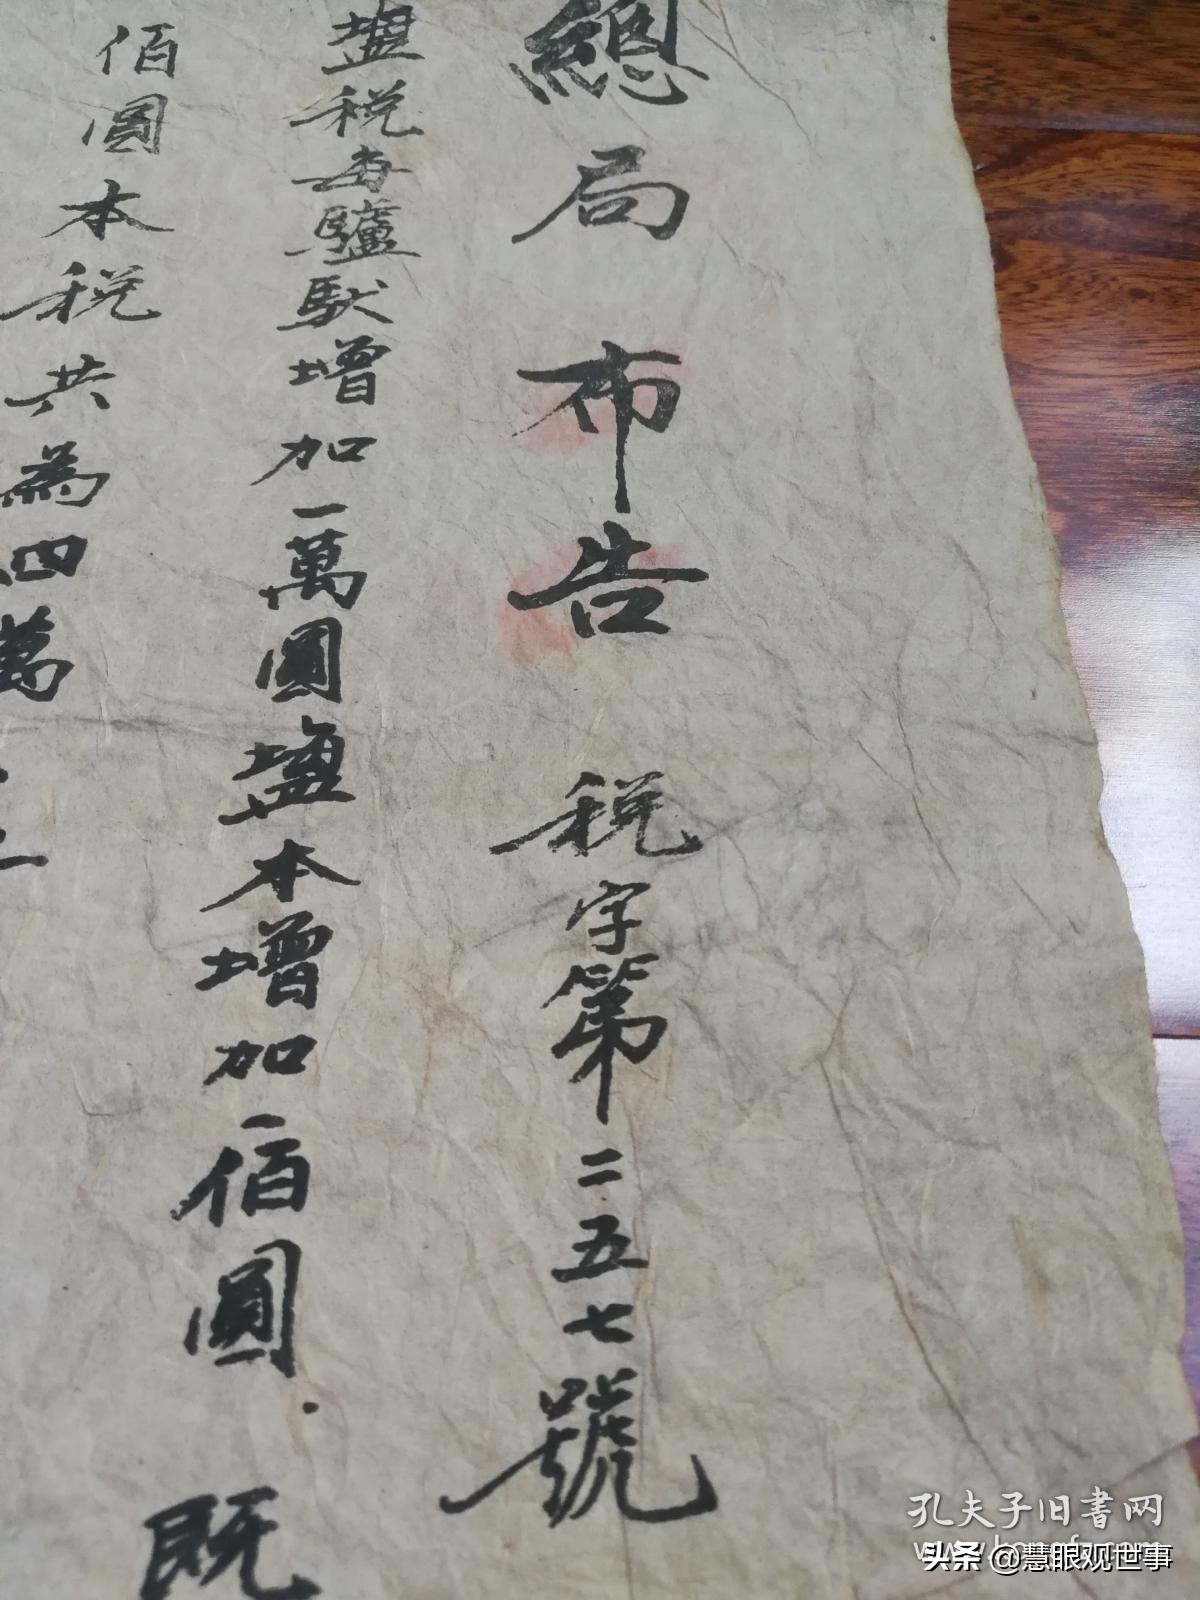 總局布告 税字第二五七號
盐税每驢馱增加一萬圓盐本增加一佰圓．既
佰圓本税共為四萬
孔夫子旧书网
头条 @慧眼观世事